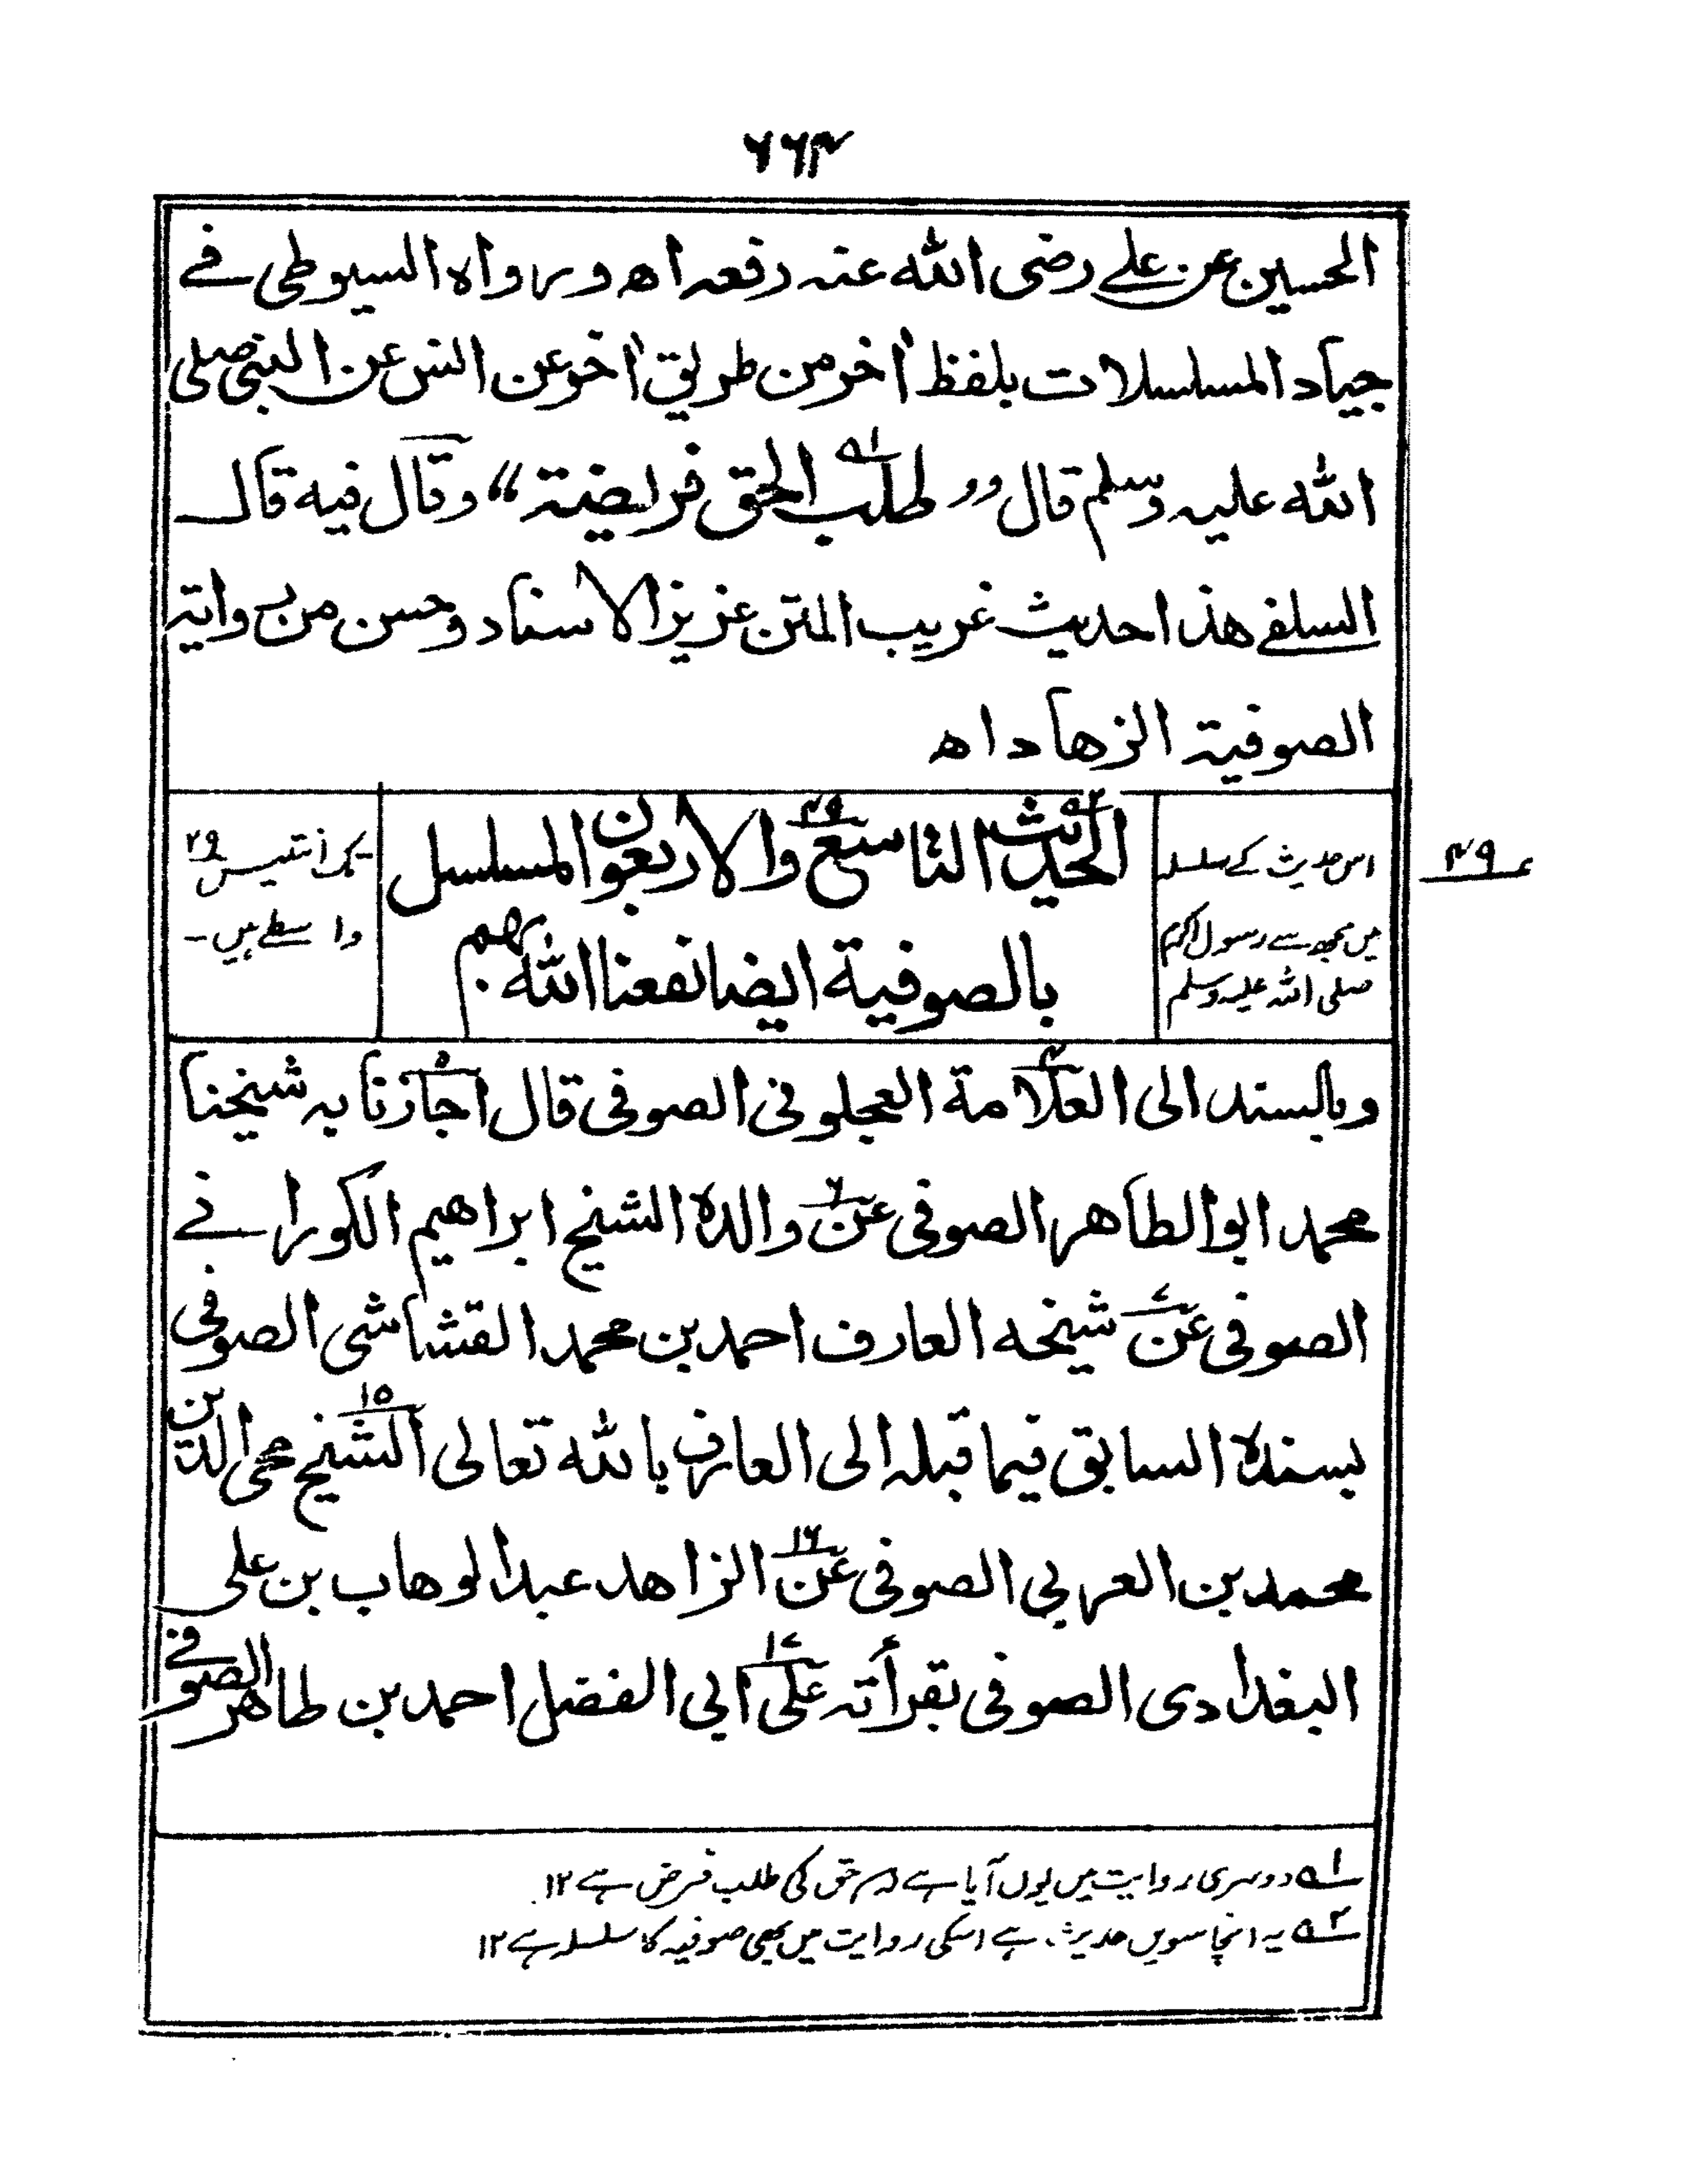 ۶۶۴
الحسین عن علے رضی اللہ عنہ رفعہ اھ ورواہ السیوطی فے
جیاد المسلسلات بلفظ اٰخر من طریق اٰخر عن انس عن النبی صلی
اللہ علیہ وسلم قال ”طلب۱ الحق فریضۃ“ وقال فیہ قال
السلفے ھذا حدیث غریب المتن عزیز الاسناد وحسن من روایۃ
الصوفیۃ الزھاد اھ
۴۹
اس حدیث کے سلسلہ
میں مجھ سے رسول اکرم
صلی اللہ علیہ وسلم
الحدیث۲ التاسع۴۹ والاربعون المسلسل
بالصوفیة ایضا نفعنا اللہ بھم
تک انتیس ۲۹
واسطے ہیں۔
وبالسند الی العلامة۴ العجلونی الصوفی قال اجازنا۵ بہ شیخنا
محمد ابوالطاھر الصوفی عن۶ والدہ الشیخ ابراھیم الکورانے
الصوفی عن۷ شیخہ العارف احمد بن محمد القشاشی الصوفی
بسندہ السابق فیما قبلہ الی العارف باللہ تعالی الشیخ۱۵ محی الدین
محمد بن العربی الصوفی عن۱۶ الزاھد عبدالوھاب بن علی
البغدادی الصوفی بقرأتہ علی۱۷ ابی الفضل احمد بن طاھر الصوفے
۱ دوسری روایت میں یوں آیا ہے کہ حق کی طلب فرض ہے ۱۲
۲ یہ انچاسویں حدیث ہے اسکی روایت میں بھی صوفیہ کا سلسلہ ہے ۱۲